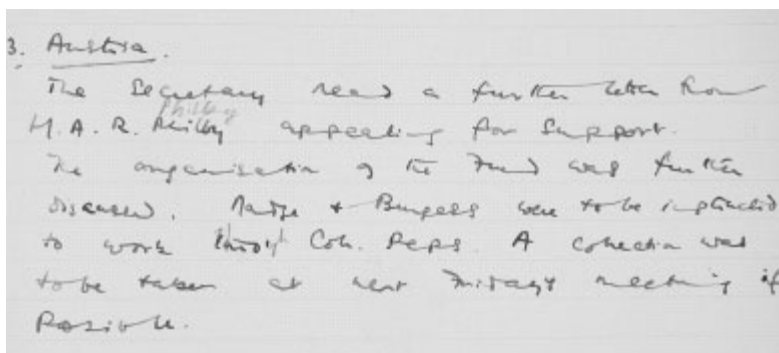 3. Austria.
The Secretary read a further letter from
Philby
H.A.R. Philby appealing for support.
The organisation of the Fund was further
discussed. Madge + Burgess were to be instructed
to work through Coll. Reps. A collection was
to be taken at next Friday's meeting if
possible.